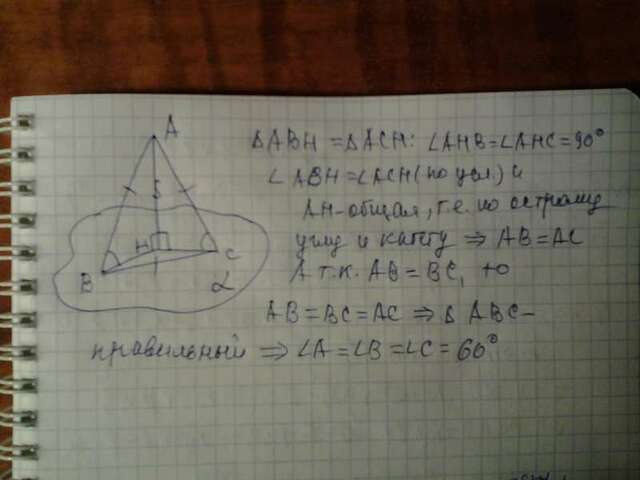 A
ΔABH = ΔACH: ∠AHB=∠AHC=90°
∠ABH=∠ACH (по усл.) и
AH-общая, т.е. по острому
углу и катету ⇒ AB=AC
А т.к. AB=BC, то
AB=BC=AC ⇒ Δ ABC-
правильный ⇒ ∠A=∠B=∠C=60°
H
C
B
α